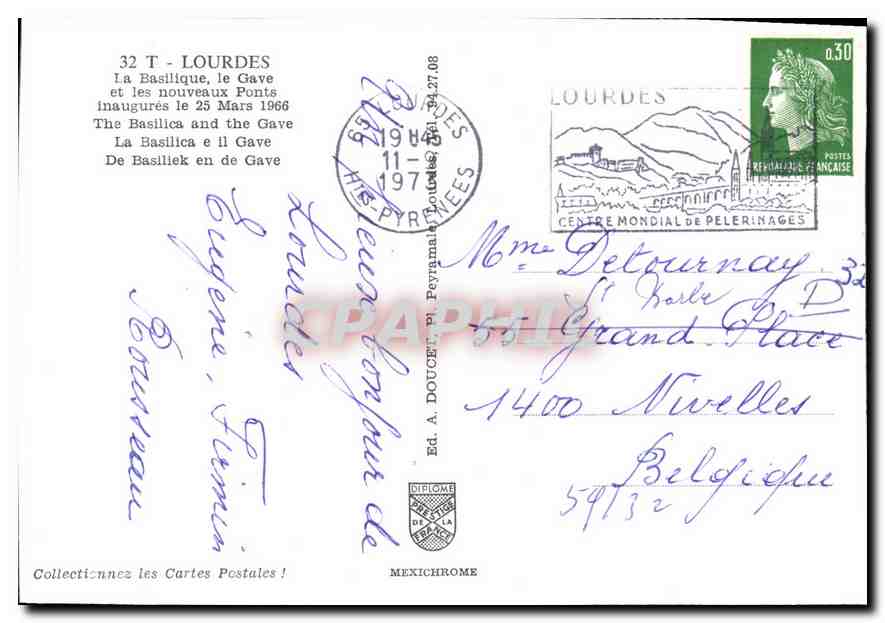 32 T - LOURDES
La Basilique, le Gave
et les nouveaux Ponts
inaugurés le 25 Mars 1966
The Basilica and the Gave
La Basilica e il Gave
De Basiliek en de Gave
bonjour de
Lourdes
Eugenie, Firmin
Rousseau
Collectionnez les Cartes Postales !
Ed. A. DOUCET, Pl. Peyramale, Lourdes, Tél. 94.27.08
DIPLOME
PRESTIGE
DE LA
FRANCE
MEXICHROME
LOURDES
HTES-PYRENEES
LOURDES
CENTRE MONDIAL DE PELERINAGES
0,30
POSTES
REPUBLIQUE FRANÇAISE
Mme Detournay
32
D
55 Grand Place
1400 Nivelles
Belgique
CPAPHIL